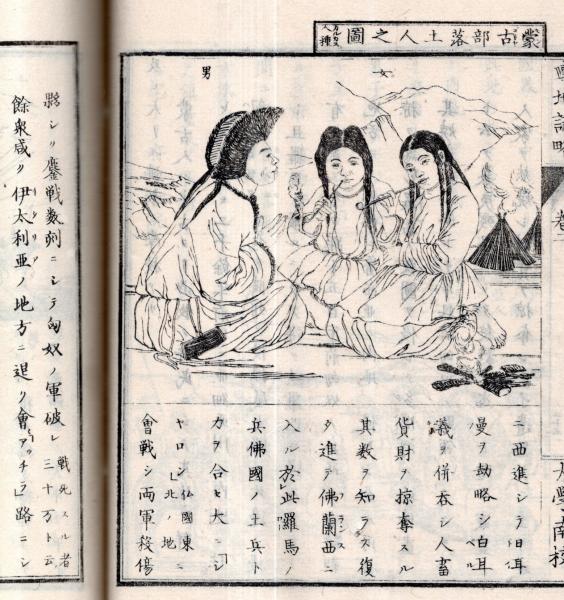 輿地誌略
卷二
大學南校
蒙古部落土人之圖 カルムク人種
女
男
ニ西進シテ日耳
曼ヲ劫略シ白耳
義ヲ併吞シ人畜
貨財ヲ掠奪スル
其数ヲ知ラス復
タ進テ佛蘭西ニ
入ル於此羅馬ノ
兵佛國ノ土兵ト
力ヲ合セ大ニ「シ
ヤロン」佛國東北ノ地ニ
會戰シ両軍殺傷
夥シリ鏖戰数刻ニシテ匈奴ノ軍破レ 戰死スル者三十万ト云
餘衆咸ク伊太利亜ノ地方ニ退ク會「アッチラ」路ニシ